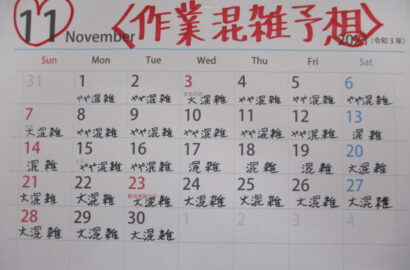 11 November 〈作業混雑予想〉
(令和3年)
Sun Mon Tue Wed Thu Fri Sat
31 1 2 3 4 5 6
やや混雑 やや混雑 大混雑 やや混雑 やや混雑 やや混雑
7 8 9 10 11 12 13
大混雑 やや混雑 やや混雑 やや混雑 やや混雑 やや混雑 混雑
14 15 16 17 18 19 20
混雑 やや混雑 やや混雑 混雑 混雑 混雑 大混雑
21 22 23 24 25 26 27
大混雑 大混雑 大混雑 大混雑 大混雑 大混雑 大混雑
28 29 30 1 2 3 4
大混雑 大混雑 大混雑